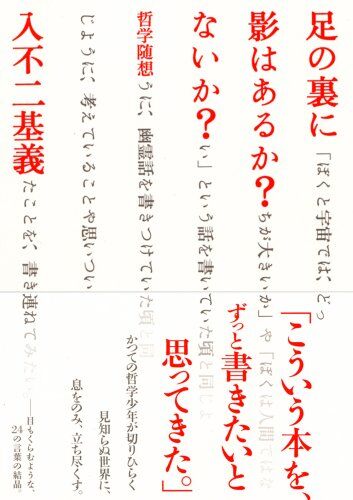 足の裏に「ぼくと宇宙では、どっ
影はあるか?ちが大きいか」や「ぼくは人間ではな
ないか?い」という話を書いていた頃と同じよ
哲学随想うに、幽霊話を書きつけていた頃と同
じように、考えていることや思いつい
入不二基義たことを、書き連ねてみたい
「こういう本を、
ずっと書きたいと
思ってきた。」
かつての哲学少年が切りひらく
見知らぬ世界に、
息をのみ、立ち尽くす。
——目もくらむような、
24の言葉の結晶。